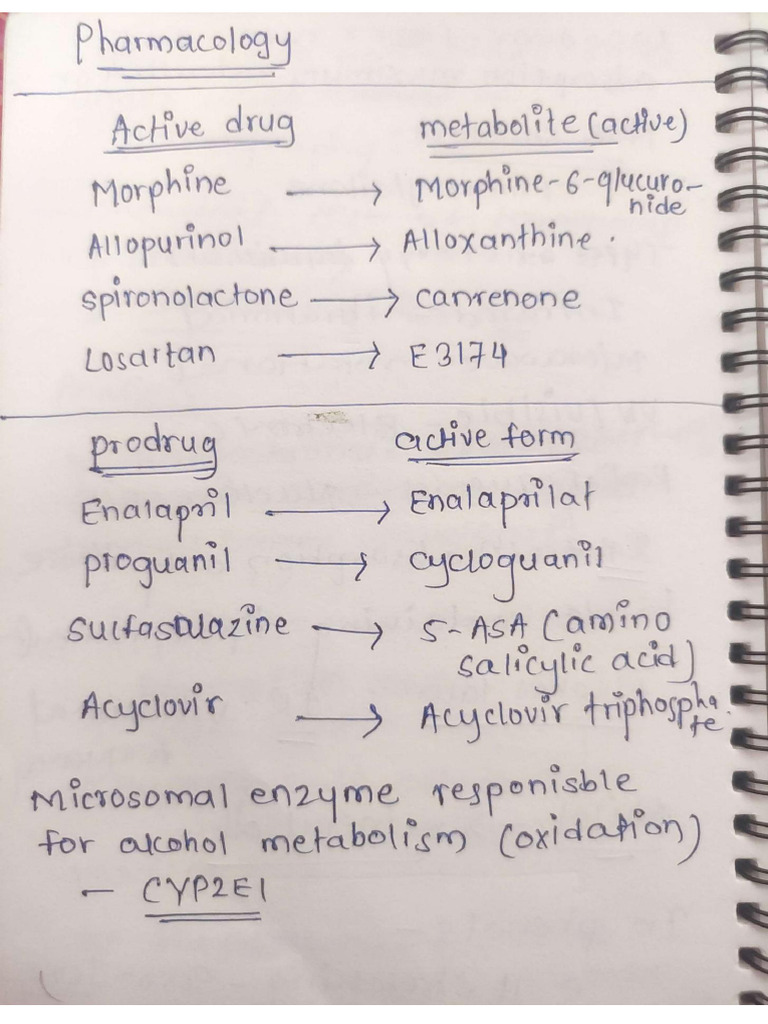 Pharmacology
Active drug metabolite (active)
Morphine → Morphine-6-glucuro-
nide
Allopurinol → Alloxanthine.
spironolactone → canrenone
Losartan → E3174
prodrug active form
Enalapril → Enalaprilat
proguanil → cycloguanil
Sulfasalazine → 5-ASA (amino
salicylic acid)
Acyclovir → Acyclovir triphospha
te.
Microsomal enzyme responisble
for alcohol metabolism (oxidation)
– CYP2E1